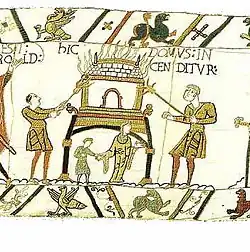 EST
ROLD:
hIC DOMVS: IN
CENDITVR: